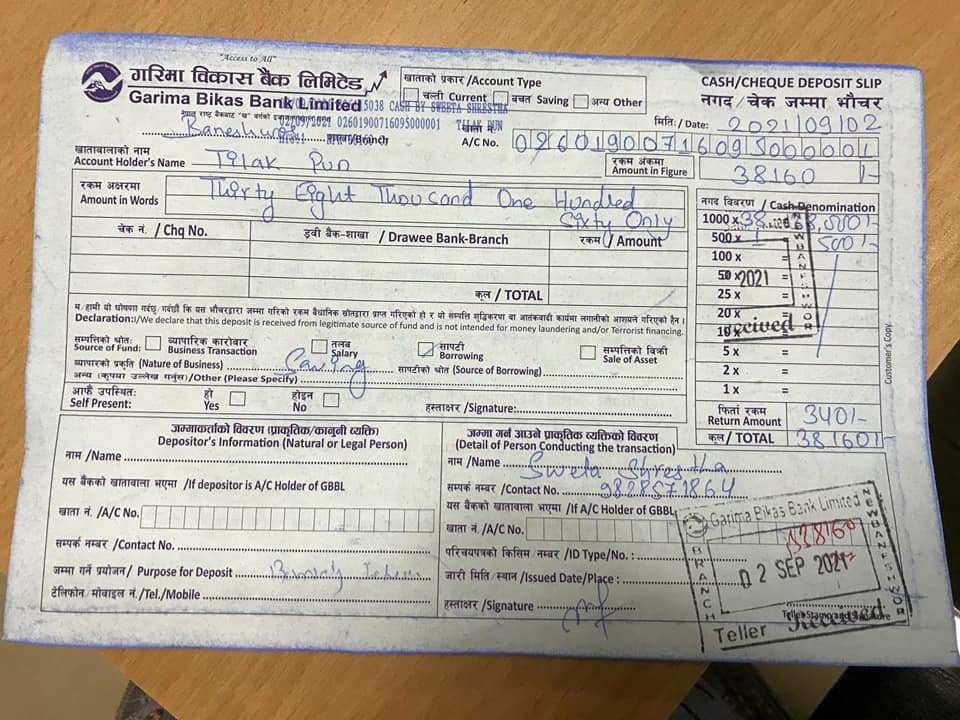 "Access to All"
गरिमा विकास बैंक लिमिटेड
Garima Bikas Bank Limited
खाताको प्रकार /Account Type
चल्ती Current बचत Saving अन्य Other
CASH/CHEQUE DEPOSIT SLIP
नगद / चेक जम्मा भौचर
5038 CASH BY SWEETA SHRESTHA
02/09/2021 02601900716095000001 TILAK PUN
मिति: / Date: 2021/09/02
Baneshwor शाखा/Branch
खाता नं. A/C No. 02601900716095000001
खातावालाको नाम
Account Holder's Name Tilak Pun
रकम अंकमा
Amount in Figure 38160 /-
रकम अक्षरमा
Amount in Words Thirty Eight Thousand One Hundred Sixty Only
नगद विवरण / Cash Denomination
चेक नं. / Chq No. ड्रवी बैंक-शाखा / Drawee Bank-Branch रकम / Amount
1000 x 38
500 x 1 500/-
100 x =
50 x =
25 x =
20 x =
10 x =
5 x =
2 x =
1 x =
कूल / TOTAL
म/हामी यो घोषणा गर्दछु/गर्दछौं कि यस भौचरद्वारा जम्मा गरिएको रकम वैधानिक स्रोतद्वारा प्राप्त गरिएको हो र यो सम्पत्ति शुद्धिकरण वा आतंकवादी कार्यमा लगानीको आशयले गरिएको हैन ।
Declaration:I/We declare that this deposit is received from legitimate source of fund and is not intended for money laundering and/or Terrorist financing.
सम्पत्तिको श्रोत:
Source of Fund:
व्यापारिक कारोवार
Business Transaction
तलब
Salary
सापटी
Borrowing
सम्पत्तिको बिक्री
Sale of Asset
व्यापारको प्रकृति (Nature of Business) सापटीको श्रोत (Source of Borrowing)
अन्य (कृपया उल्लेख गर्नुस)/Other (Please Specify) Saving
आफै उपस्थित:
Self Present:
हो
Yes
होइन
No
हस्ताक्षर /Signature:
फिर्ता रकम
Return Amount 340/-
कूल / TOTAL 38160/-
Customer's Copy
जम्माकर्ताको विवरण (प्राकृतिक/कानुनी व्यक्ति)
Depositor's Information (Natural or Legal Person)
नाम /Name
यस बैंकको खातावाला भएमा /If depositor is A/C Holder of GBBL
खाता नं. /A/C No.
सम्पर्क नम्बर /Contact No.
जम्मा गर्ने प्रयोजन/ Purpose for Deposit
टेलिफोन/मोवाइल नं./Tel./Mobile
जम्मा गर्न आउने प्राकृतिक व्यक्तिको विवरण
(Detail of Person Conducting the transaction)
नाम /Name Sweta Shrestha
सम्पर्क नम्बर /Contact No. 9828571864
यस बैंकको खातावाला भएमा /If A/C Holder of GBBL
खाता नं. /A/C No.
परिचयपत्रको किसिम नम्बर /ID Type/No.:
जारी मिति/स्थान /Issued Date/Place:
हस्ताक्षर /Signature
2021
Received
Garima Bikas Bank Limited
38160
02 SEP 2021
BRANCH
Teller Received